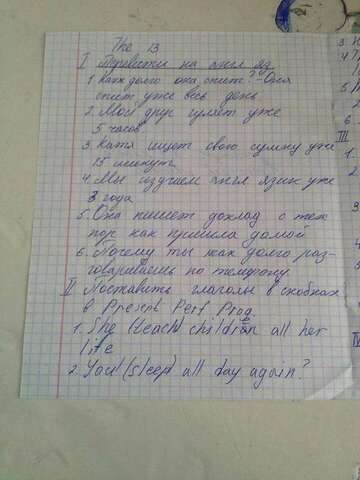 The 13
I Перевести на англ яз
1. Как долго она спит? - Она
спит уже весь день
2. Мой друг гуляет уже
5 часов
3. Катя ищет свою сумку уже
15 минут
4. Мы изучаем англ язик уже
3 года
5. Она пишет доклад с тех
пор как пришла домой
6. Почему ты так долго раз-
говариваешь по телефону
II Поставить глаголы в скобках
в Present Perf Prog
1. She (teach) children all her
life
2. You (sleep) all day again?
3.
4.
III
1.
2.
3.